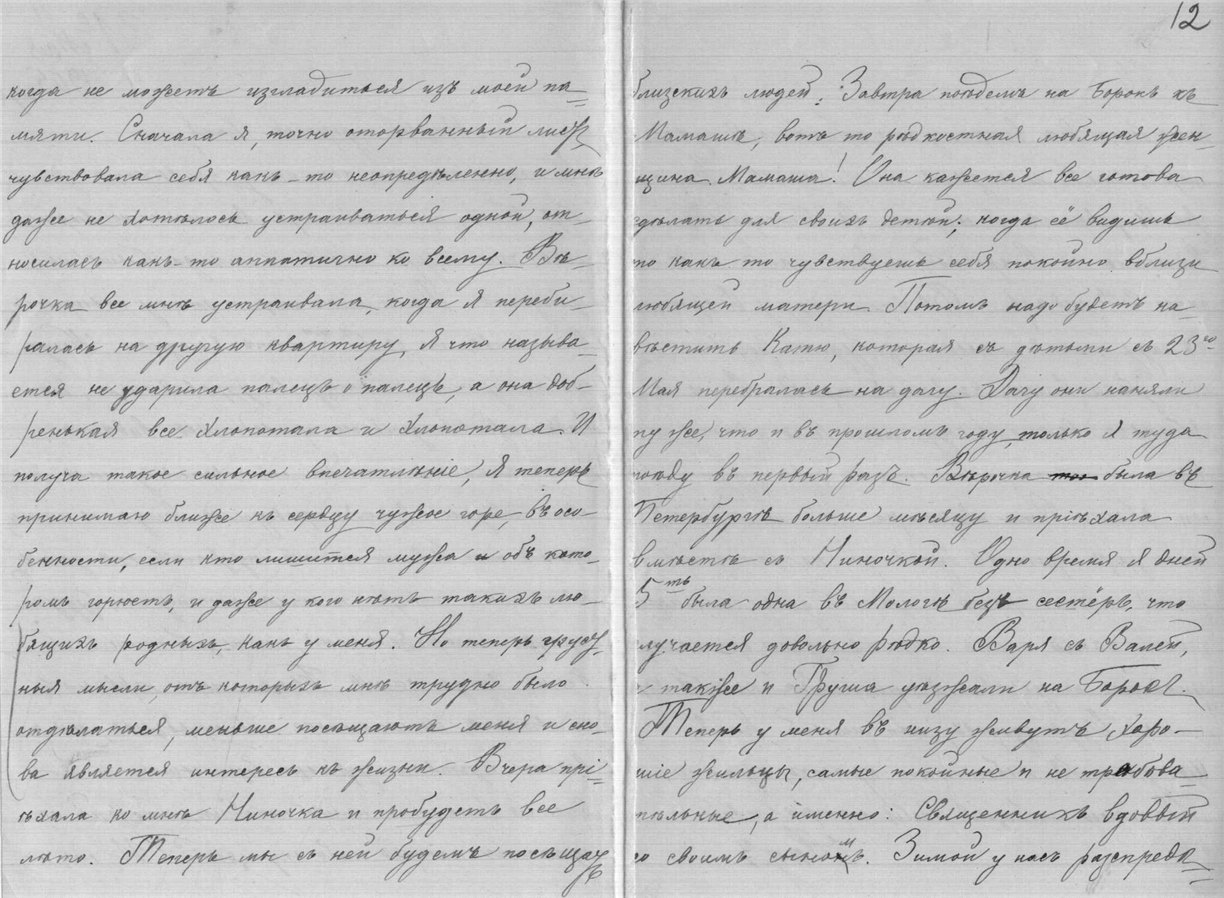 когда не можетъ изгладиться изъ моей па=
мяти. Сначала я, точно оторванный листъ
чувствовала себя какъ-то неопредѣленно, и мнѣ
даже не хотѣлось устраиваться одной, от-
носилась какъ-то аппатично ко всему. Вѣ-
рочка все мнѣ устраивала, когда я переби
ралась на другую квартиру, я что называ=
ется не ударила палецъ о палецъ, а она доб-
ренькая все хлопотала и хлопотала. И
получа такое сильное впечатлѣніе, я теперь
принимаю ближе къ сердцу чужое горе, въ осо-
бенности, если кто лишится мужа и объ кото
ромъ горюетъ, и даже у кого нѣтъ такихъ лю-
бящихъ родныхъ, какъ у меня. Но теперь груст
ныя мысли, отъ которыхъ мнѣ трудно было
отдѣлаться, меньше посѣщаютъ меня и сно-
ва является интересъ къ жизни. Вчера прі-
ѣхала ко мнѣ Ниночка и пробудетъ все
лѣто. Теперь мы съ ней будемъ посѣщать
12
близскихъ людей; Завтра поѣдемъ на Борокъ къ
Мамашѣ, вотъ то рѣдкостная любящая жен-
щина Мамаша! Она кажется все готова
сдѣлать для своихъ дѣтей; когда её видишь
то какъ то чувствуешь себя покойно вблизи
любящей матери. Потомъ надо будетъ на-
вѣстить Катю, которая съ дѣтьми съ 23го
Мая перебралась на дачу. Дачу они наняли
ту же, что и въ прошломъ году, только я туда
поѣду въ первый разъ. Вѣрочка была въ
Петербургѣ больше мѣсяцу и пріѣхала
вмѣстѣ съ Ниночкой. Одно время я дней
5ть была одна въ Мологѣ безъ сестёръ, что
случается довольно рѣдко. Варя съ Валей,
а также и Груша уѣзжали на Борокъ.
Теперь у меня въ низу живутъ хоро-
шіе жильцы, самые покойные и не требова
тельные, а именно: Священникъ вдовый
со своимъ сыномъ. Зимой у насъ распредѣ=